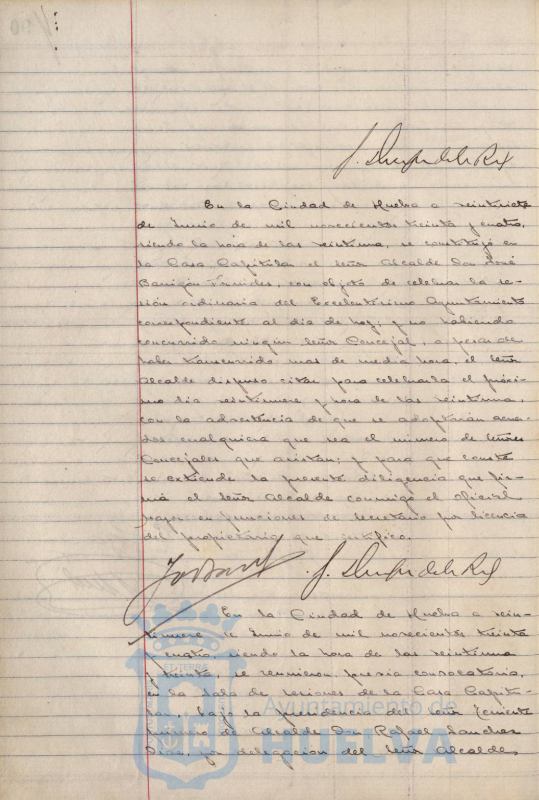 En la Ciudad de Huelva a veintisiete
de Junio de mil novecientos treinta y cuatro,
siendo la hora de las veintiuna, se constituyó en
la Casa Capitular el señor Alcalde Don José
Barrigón Fornieles, con objeto de celebrar la se-
sión ordinaria del Excelentísimo Ayuntamiento
correspondiente al día de hoy; y no habiendo
concurrido ningún señor Concejal, a pesar de
haber transcurrido mas de media hora, el señor
Alcalde dispuso citar para celebrarla el próxi-
mo día veintinueve y hora de las veintiuna,
con la advertencia de que se adoptarán acuer-
dos cualquiera que sea el número de señores
Concejales que asistan; y para que conste
se extiende la presente diligencia que fir-
ma el señor Alcalde conmigo el oficial
mayor en funciones de secretario por licencia
del propietario que certifico.
En la Ciudad de Huelva a vein-
tinueve de Junio de mil novecientos treinta
y cuatro, siendo la hora de las veintiuna
y treinta, se reunieron, previa convocatoria,
en la sala de sesiones de la Casa Capitu-
lar, bajo la presidencia del señor Teniente
primero de Alcalde Don Rafael Sanchez
Diaz, por delegacion del señor Alcalde,
Ayuntamiento de
HUELVA